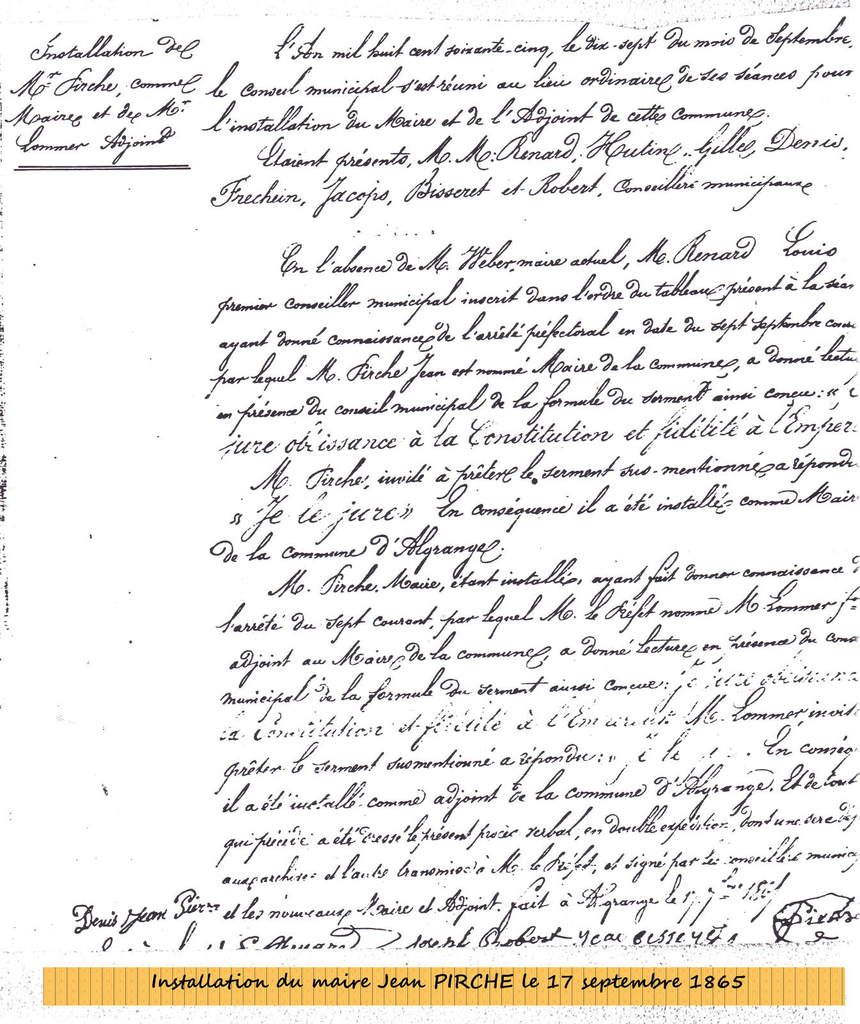 Installation de
Mr Pirche, comme
Maire et de Mr
Lommer Adjoint
L'An mil huit cent soixante-cinq, le dix-sept du mois de Septembre,
le Conseil municipal s'est réuni au lieu ordinaire de ses séances pour
l'installation du Maire et de l'Adjoint de cette Commune.
Etaient présents, M.M. Renard, Hutin, Gille, Denis,
Frechein, Jacops, Bisseret et Robert, Conseillers municipaux
En l'absence de M. Weber, maire actuel, M. Renard Louis
premier conseiller municipal inscrit dans l'ordre du tableau, présent à la séan
ayant donné connaissance de l'arrêté préfectoral en date du sept septembre cour
par lequel M. Pirche Jean est nommé Maire de la commune, a donné lectu
en présence du conseil municipal de la formule du serment ainsi conçue : «
jure obéissance à la Constitution et fidélité à l'Emper
M. Pirche, invité à prêter le serment sus-mentionné a répondu
« Je le jure » En conséquence il a été installé comme Mair
de la commune d'Algrange.
M. Pirche, Maire, étant installé, ayant fait donner connaissance d
l'arrêté du sept courant, par lequel M. le Préfet nomme M. Lommer
adjoint au Maire de la commune, a donné lecture en présence du cons
municipal de la formule du serment aussi conçue : je jure obéissance
la Constitution et fidélité à l'Empereur M. Lommer invité
prêter le serment susmentionné a répondu : je le En conség
il a été installé comme adjoint de la commune d'Algrange. Et de tout
qui précède a été dressé le présent procès verbal, en double expédition, dont une sera dép
aux archives et l'autre transmise à M. le Préfet, et signé par les conseillers munici
et les nouveaux Maire et Adjoint. fait à Algrange le 17 7bre 1865
Denis Jean Pierre
Renard Robert Pirche
Installation du maire Jean PIRCHE le 17 septembre 1865